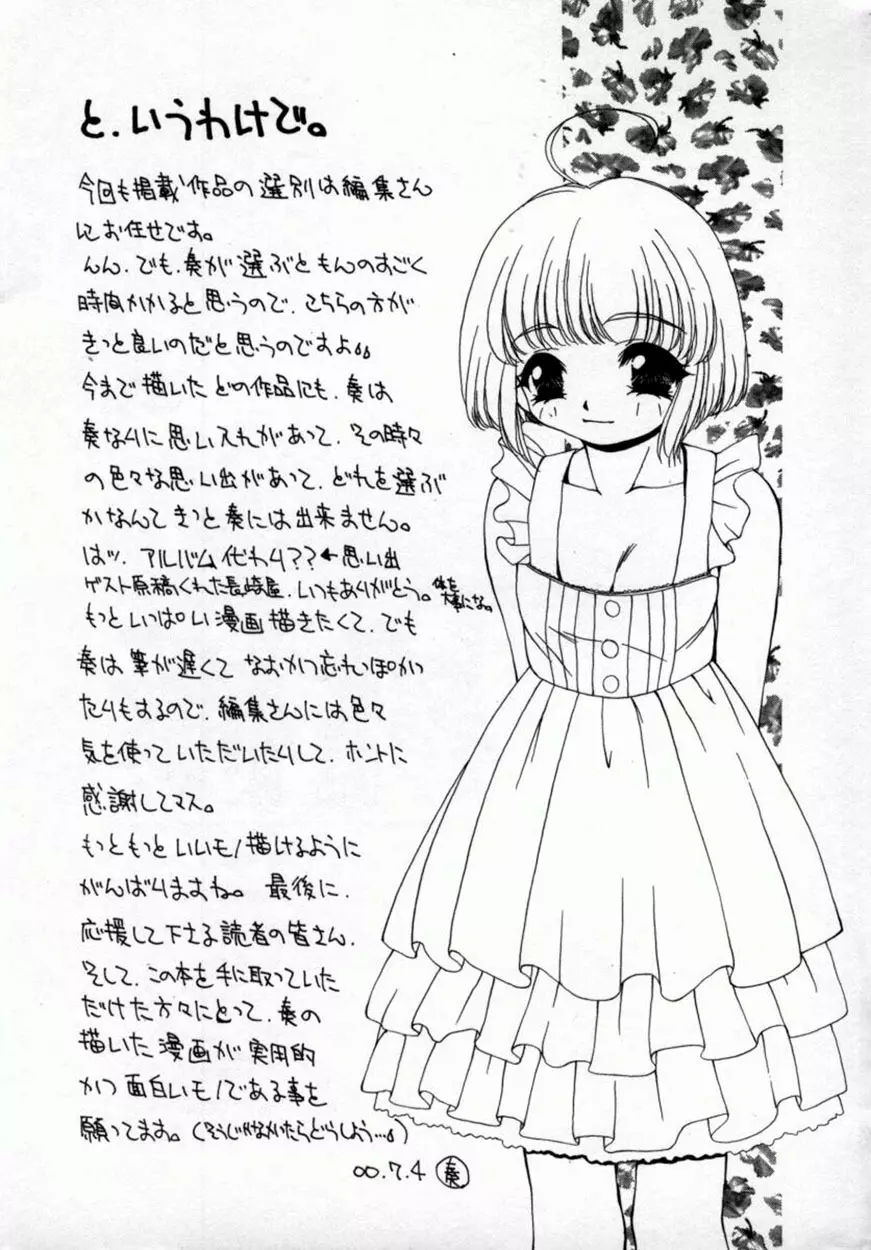 と、いうわけで。
今回も掲載作品の選別は編集さん
にお任せです。
んん、でも、奏が選ぶともんのすごく
時間かかると思うので、こちらの方が
きっと良いのだと思うのですよ。。
今まで描いたどの作品にも、奏は
奏なりに思い入れがあって、その時々
の色々な思い出があって、どれを選ぶ
かなんてきっと奏には出来ません。
はッ、アルバム代わり??←思い出
ゲスト原稿くれた長崎屋、いつもありがとう。体を
大事にな。
もっといっぱい漫画描きたくて、でも
奏は筆が遅くてなおかつ忘れっぽかっ
たりもするので、編集さんには色々
気を使っていただいたりして、ホントに
感謝してマス。
もっともっといいモノ描けるように
がんばりますね。 最後に、
応援して下さる読者の皆さん、
そして、この本を手に取っていた
だけた方々にとって、奏の
描いた漫画が実用的
かつ面白いモノである事を
願ってます。(そうじゃなかったらどうしよう…。)
00.7.4 奏